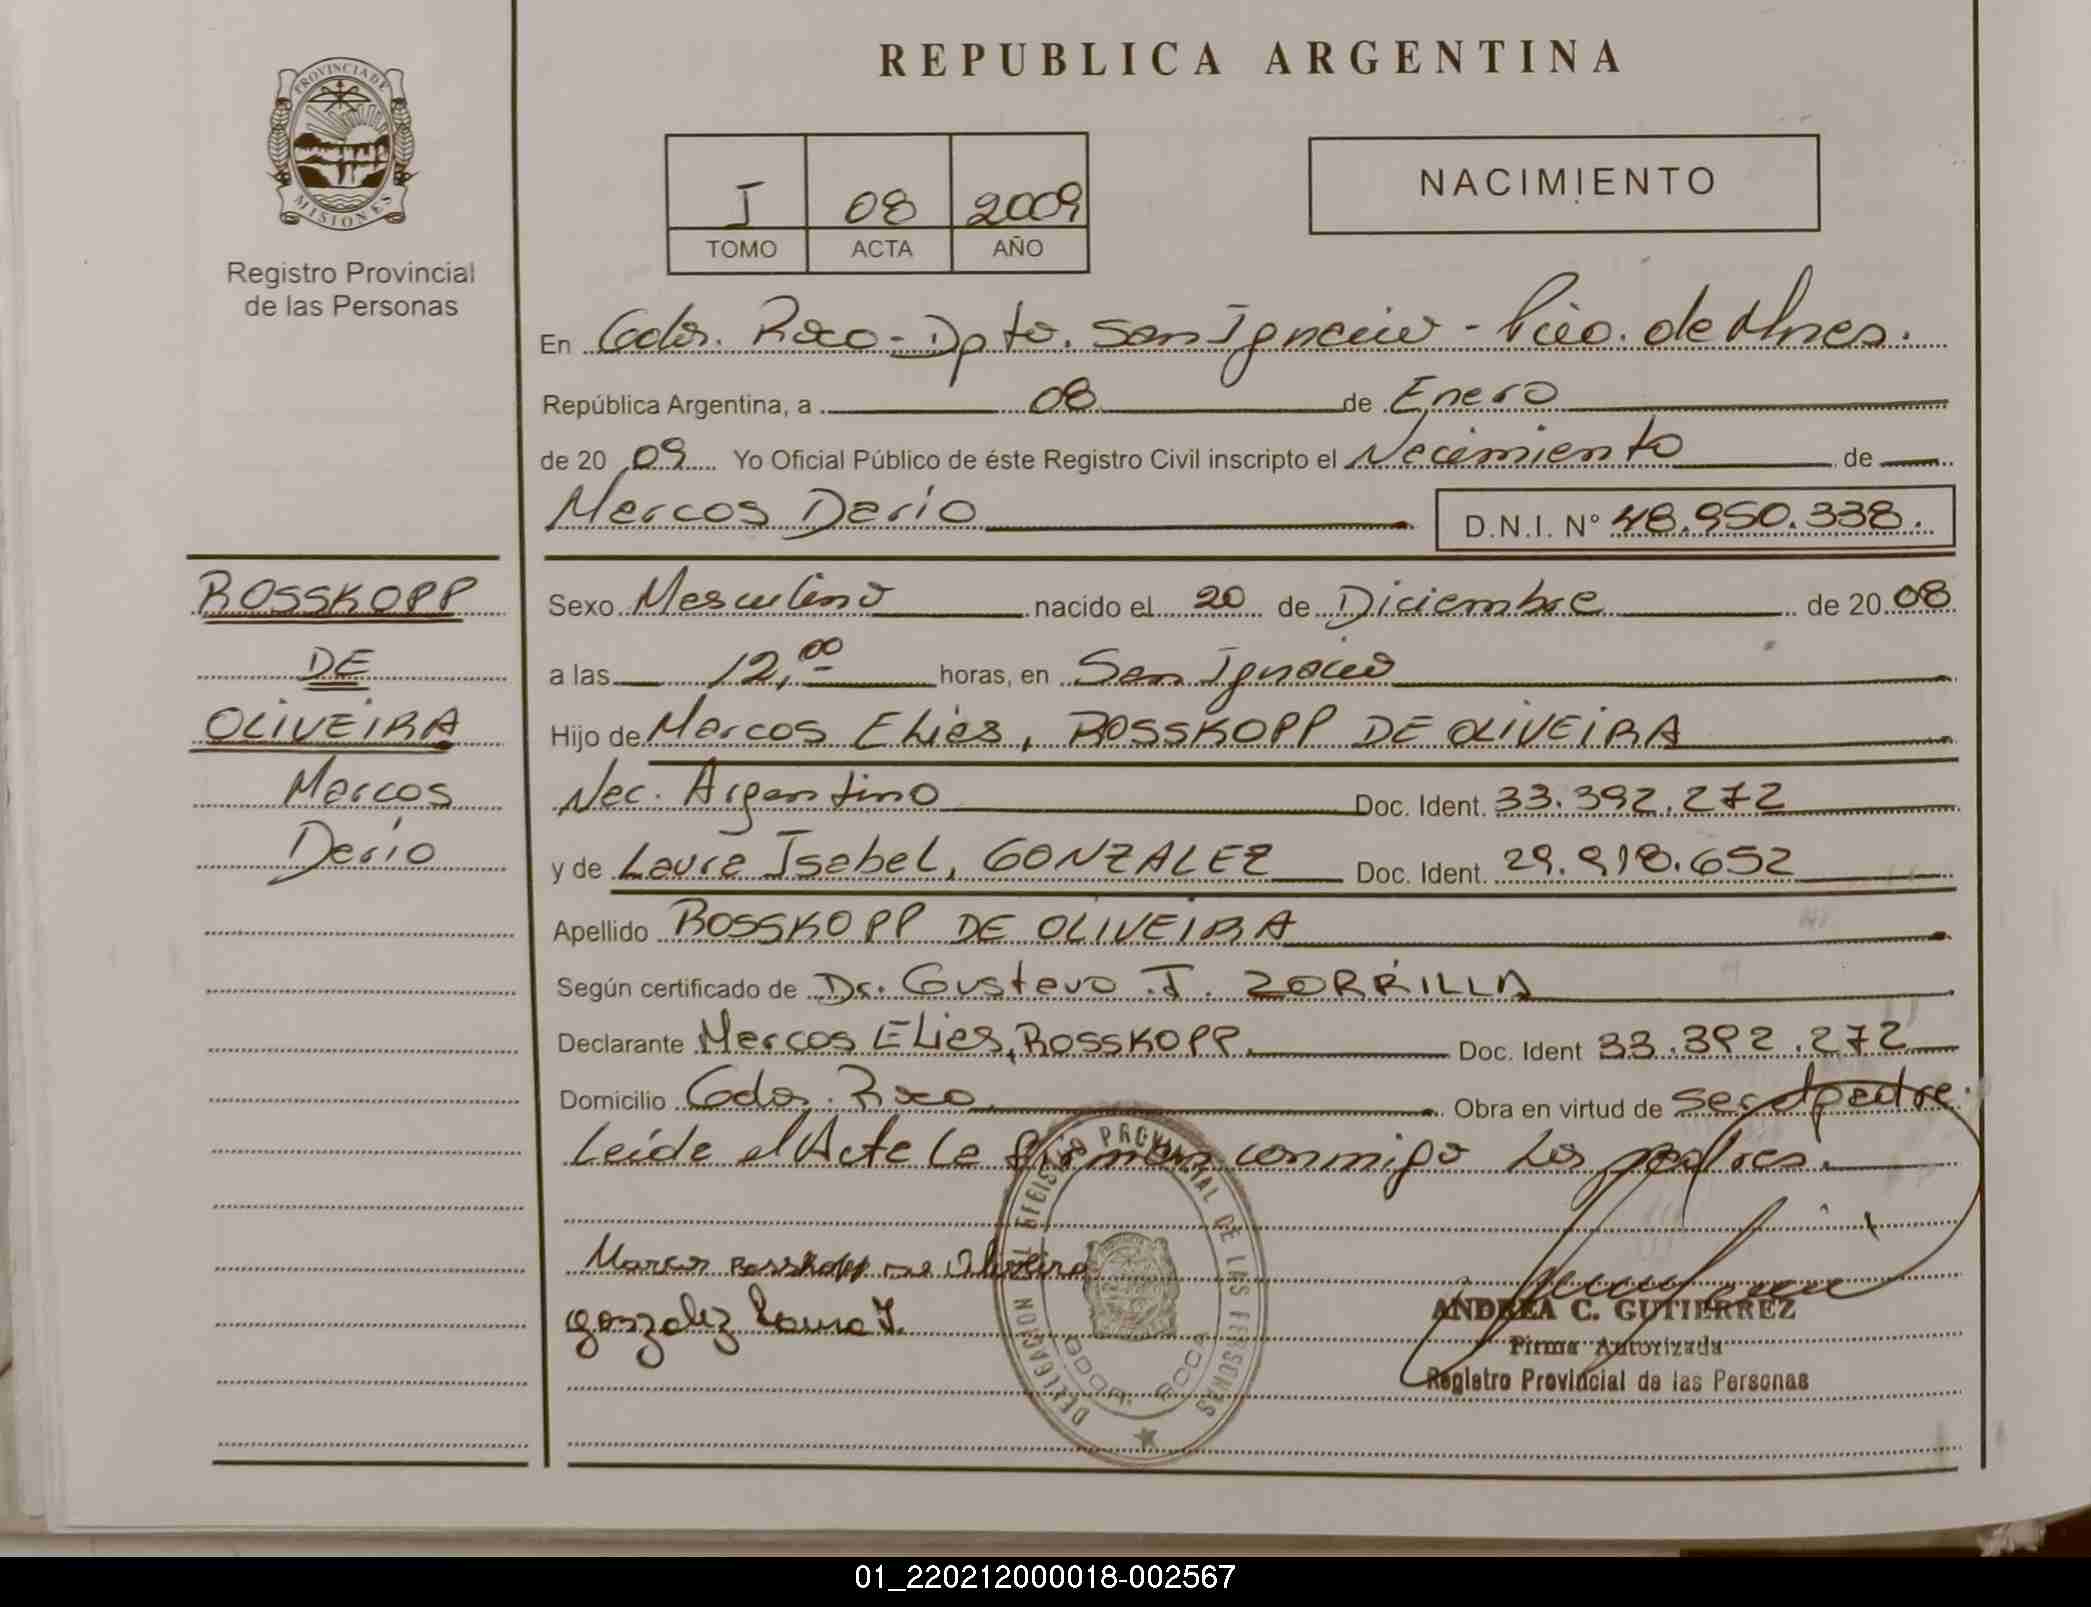 REPUBLICA ARGENTINA
PROVINCIA DE
MISIONES
Registro Provincial
de las Personas
I 08 2009
TOMO ACTA AÑO
NACIMIENTO
En Gdor. Roca - Dpto. San Ignacio - Pcia. de Mnes.
República Argentina, a 08 de Enero
de 2009 Yo Oficial Público de éste Registro Civil inscripto el Nacimiento de
Marcos Darío D.N.I. N° 48.950.338.
ROSSKOPP
DE
OLIVEIRA
Marcos
Darío
Sexo Masculino nacido el 20 de Diciembre de 2008
a las 12,00 horas, en San Ignacio
Hijo de Marcos Elias, ROSSKOPP DE OLIVEIRA
Nac. Argentino Doc. Ident. 33.392.272
y de Laura Isabel, GONZALEZ Doc. Ident. 29.918.652
Apellido ROSSKOPP DE OLIVEIRA
Según certificado de Dr. Gustavo J. ZORRILLA
Declarante Marcos Elias, ROSSKOPP. Doc. Ident 33.392.272
Domicilio Gdor. Roca Obra en virtud de ser padre.
Leída el Acta la firman conmigo los padres.
Marcos Rosskopp De Oliveira
gonzalez Laura I.
DELEGACION REGISTRO PROVINCIAL DE LAS PERSONAS
GDOR. ROCA
ANDREA C. GUTIERREZ
Firma Autorizada
Registro Provincial de las Personas
01_220212000018-002567